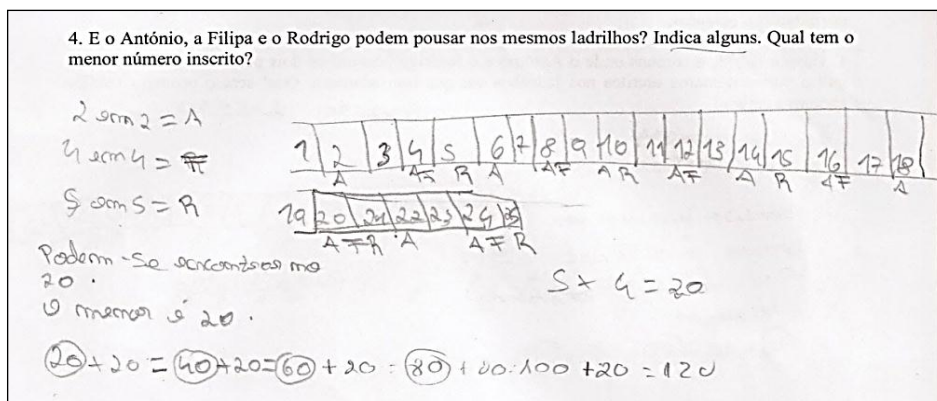 4. E o António, a Filipa e o Rodrigo podem pousar nos mesmos ladrilhos? Indica alguns. Qual tem o
menor número inscrito?
2 em 2 = A
4 em 4 = F
5 em 5 = R
1 2 3 4 5 6 7 8 9 10 11 12 13 14 15 16 17 18
A AF R A AF AR AF A R AF A
19 20 21 22 23 24 25
AFR A AF R
Podem-se encontrar no
20.
O menor é 20.
5 x 4 = 20
20 + 20 = 40 + 20 = 60 + 20 = 80 + 20 = 100 + 20 = 120